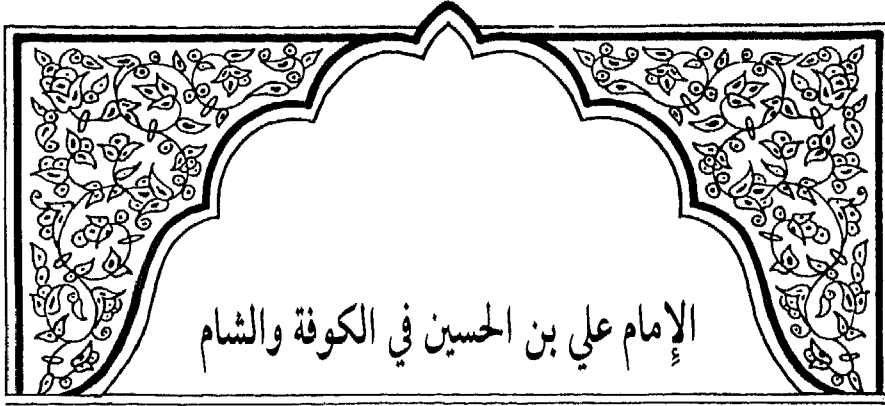 الإِمام علي بن الحسين في الكوفة والشام